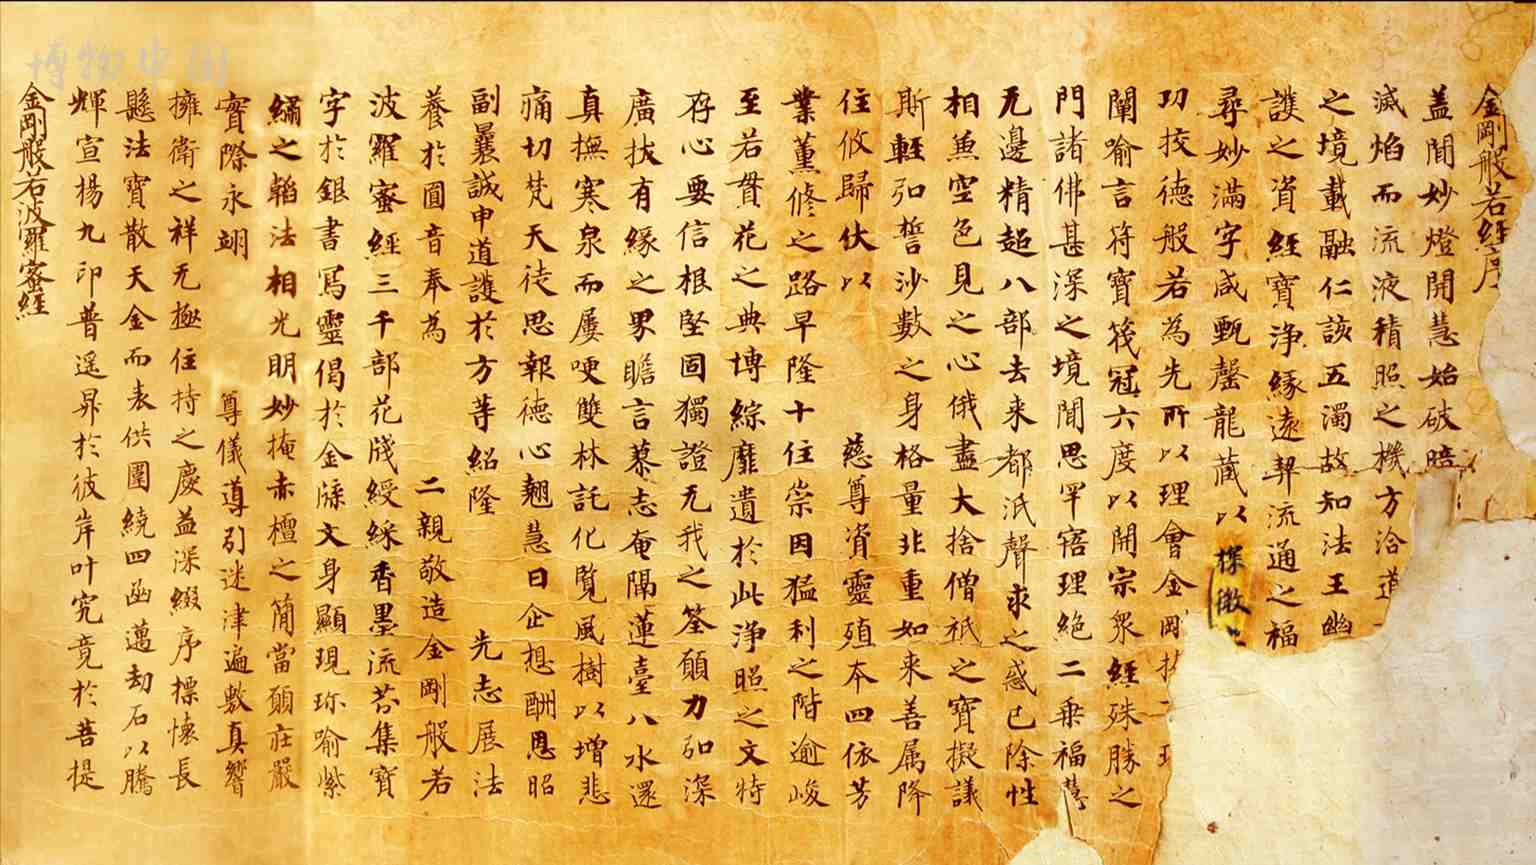 博物中国
金剛般若經序
盖聞妙燈開慧始破暗
滅焰而流液積照之機方洽道
之境載融仁該五濁故知法王幽
護之資經寶淨緣遠契流通之福
尋妙滿字咸甄罄龍藏以探微
功挍德般若為先所以理會金剛
闡喻言符寶筏冠六度以開宗眾經殊勝之
門諸佛甚深之境聞思罕窹理絕二乘福慧
无邊精超八部去来都泯聲求之惑已除性
相魚空色見之心俄盡大捨僧祇之寶擬議
斯輕弘誓沙數之身格量非重如来善属降
住攸歸伏以 慈尊資靈殖本四依芳
業薰修之路早隆十住崇因猛利之階逾峻
至若貫花之典博綜靡遺於此浄照之文特
存心要信根堅固獨證无我之筌願力弘深
廣扙有緣之界瞻言慕志奄隔蓮臺八水還
真撫寒泉而屢哽雙林託化覧風樹以增悲
痛切梵天徒思報德心翹慧日企想酬恩昭
副曩誠申道護於方等紹隆 先志展法
養於圓音奉為 二親敬造金剛般若
波羅蜜經三千部花牋綬綵香墨流芬集寶
字於銀書寫靈偈於金牒文身顯現珎喻紫
繡之韜法相光明妙掩赤檀之簡當願莊嚴
實際永翊 尊儀導引迷津遍敷真響
擁衛之祥无極住持之慶益深綴序標懷長
懸法寶散天金而表供圍繞四函邁劫石以騰
輝宣揚九印普遥昇於彼岸叶究竟於菩提
金剛般若波羅蜜經